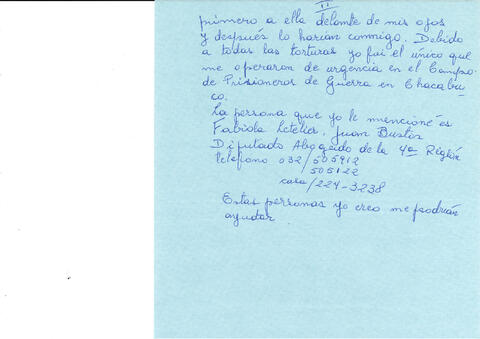 II
primero a ella delante de mis ojos
y después lo harían conmigo. Debido
a todas las torturas yo fui el único que
me operaron de urgencia en el Campo
de Prisioneros de Guerra en Chacabu
co.
La persona que yo le mencioné es
Fabiola Letelier, Juan Bustos
Diputado Abogado de la 4ª Región
telefono 032/505912
505122
casa/224-3238
Estas personas yo creo me podrían
ayudar